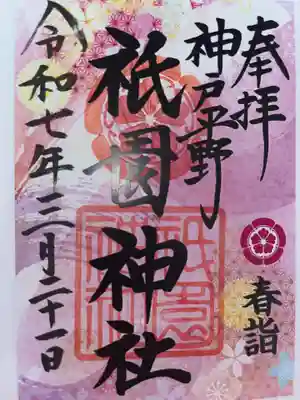 奉拝
春詣
神戸平野
祇園神社
令和七年三月二十一日